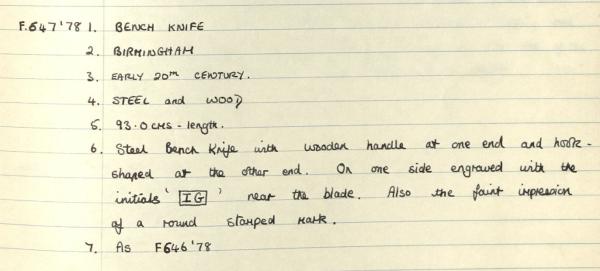 F.647'78 1. BENCH KNIFE
2. BIRMINGHAM
3. EARLY 20TH CENTURY.
4. STEEL and WOOD
5. 93.0 CMS - length.
6. Steel Bench Knife with wooden handle at one end and hook-
shaped at the other end. On one side engraved with the
initials 'IG' near the blade. Also the faint impression
of a round stamped mark.
7. As F646'78